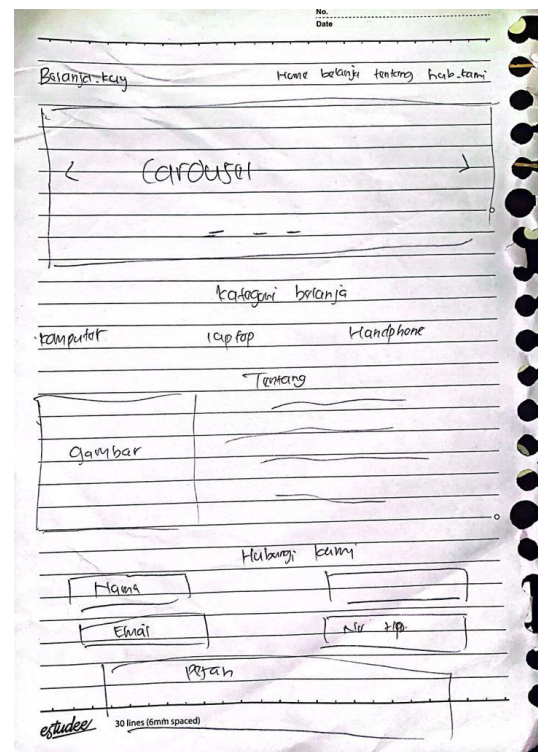 No.
Date
Belanja.kuy Home belanja tentang hub.kami
< Carousel >
kategori belanja
komputer laptop Handphone
Tentang
gambar
Hubungi kami
Nama
Email No tlp.
Pesan
estudee 30 lines (6mm spaced)